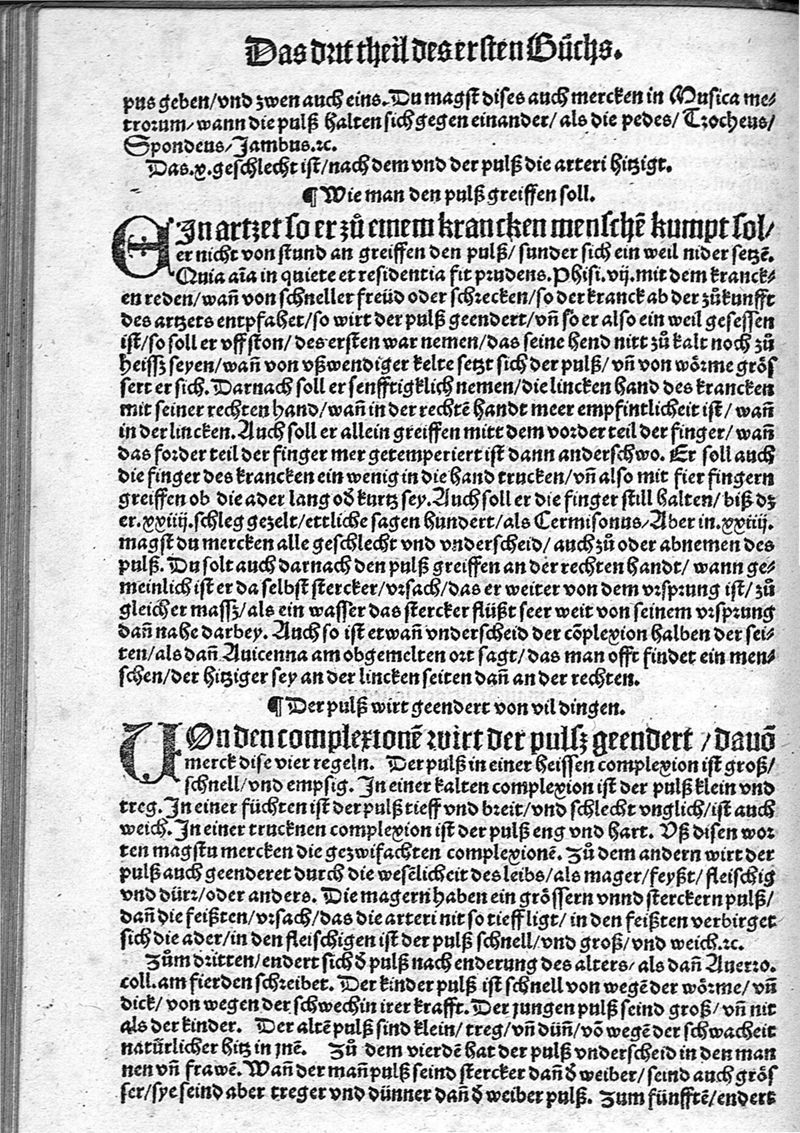 Das drit theil des ersten Bůchs.
pus geben/vnd zwen auch eins. Du magst dises auch mercken in Musica me⸗
trorum/wann die pulß halten sich gegen einander/als die pedes/Trocheus/
Spondeus/Jambus.⁊c.
Das.x.geschlecht ist/nach dem vnd der pulß die arteri hitzigt.
¶ Wie man den pulß greiffen soll.
EIn artzet so er zů einem krancken menschē kumpt sol/
er nicht von stund an greiffen den pulß/sunder sich ein weil nider setzē.
Quia aīa in quiete et residentia fit prudens. Phisi.vij.mit dem kranck⸗
en reden/wañ von schneller freüd oder schrecken/so der kranck ab der zůkunfft
des artzets entpfahet/so wirt der pulß geendert/vñ so er also ein weil gesessen
ist/so soll er vff ston/des ersten war nemen/das seine hend nitt zů kalt noch zů
heissz seyen/wañ von vßwendiger kelte setzt sich der pulß/vñ von wörme grös
sert er sich. Darnach soll er senfftigklich nemen/die lincken hand des krancken
mit seiner rechten hand/wañ in der rechtē handt meer empfintlicheit ist/wañ
in der lincken. Auch soll er allein greiffen mitt dem vorder teil der finger/wañ
das forder teil der finger mer getemperiert ist dann anderschwo. Er soll auch
die finger des krancken ein wenig in die hand trucken/vñ also mit fier fingern
greiffen ob die ader lang oď kurtz sey. Auch soll er die finger still halten/biß dz
er.xxiiij.schleg gezelt/ettliche sagen hundert/als Cermisonus/Aber in.xxiiij.
magst du mercken alle geschlecht vnd vnderscheid/auch zů oder abnemen des
pulß. Du solt auch darnach den pulß greiffen an der rechten handt/wann ge⸗
meinlich ist er da selbst stercker/vrsach/das er weiter von dem vrsprung ist/zů
gleicher massz/als ein wasser das stercker flüßt seer weit von seinem vrsprung
dañ nahe darbey. Auch so ist etwañ vnderscheid der cōplexion halben der sei⸗
ten/als dañ Auicenna am obgemelten ort sagt/das man offt findet ein men⸗
schen/der hitziger sey an der lincken seiten dañ an der rechten.
¶ Der pulß wirt geendert von vil dingen.
VOn den complexionē wirt der pulsz geendert/dauō
merck dise vier regeln. Der pulß in einer heissen complexion ist groß/
schnell/vnd empsig. In einer kalten complexion ist der pulß klein vnd
treg. In einer füchten ist der pulß tieff vnd breit/vnd schlecht vnglich/ist auch
weich. In einer trucknen complexion ist der pulß eng vnd hart. Vß disen wor
ten magstu mercken die gezwifachten complexionē. Zů dem andern wirt der
pulß auch geenderet durch die wesēlicheit des leibs/als mager/feyßt/fleischig
vnd dürr/oder anders. Die magern haben ein grössern vnnd sterckern pulß/
dañ die feißten/vrsach/das die arteri nit so tieff ligt/in den feißten verbirget
sich die ader/in den fleischigen ist der pulß schnell/vnd groß/vnd weich.⁊c.
Zům dritten/endert sich ď pulß nach enderung des alters/als dañ Auerro.
coll.am fierden schreibet. Der kinder pulß ist schnell von wegē der wörme/vñ
dick/von wegen der schwechin irer krafft. Der jungen pulß seind groß/vñ nit
als der kinder. Der altē pulß sind klein/treg/vñ düñ/vō wegē der schwacheit
natürlicher hitz in jnē. Zů dem vierdē hat der pulß vnderscheid in den man
nen vñ frawē. Wañ der mañ pulß seind stercker dañ ď weiber/seind auch grös
ser/sye seind aber treger vnd dünner dañ ď weiber pulß. Zum fünfftē/endert